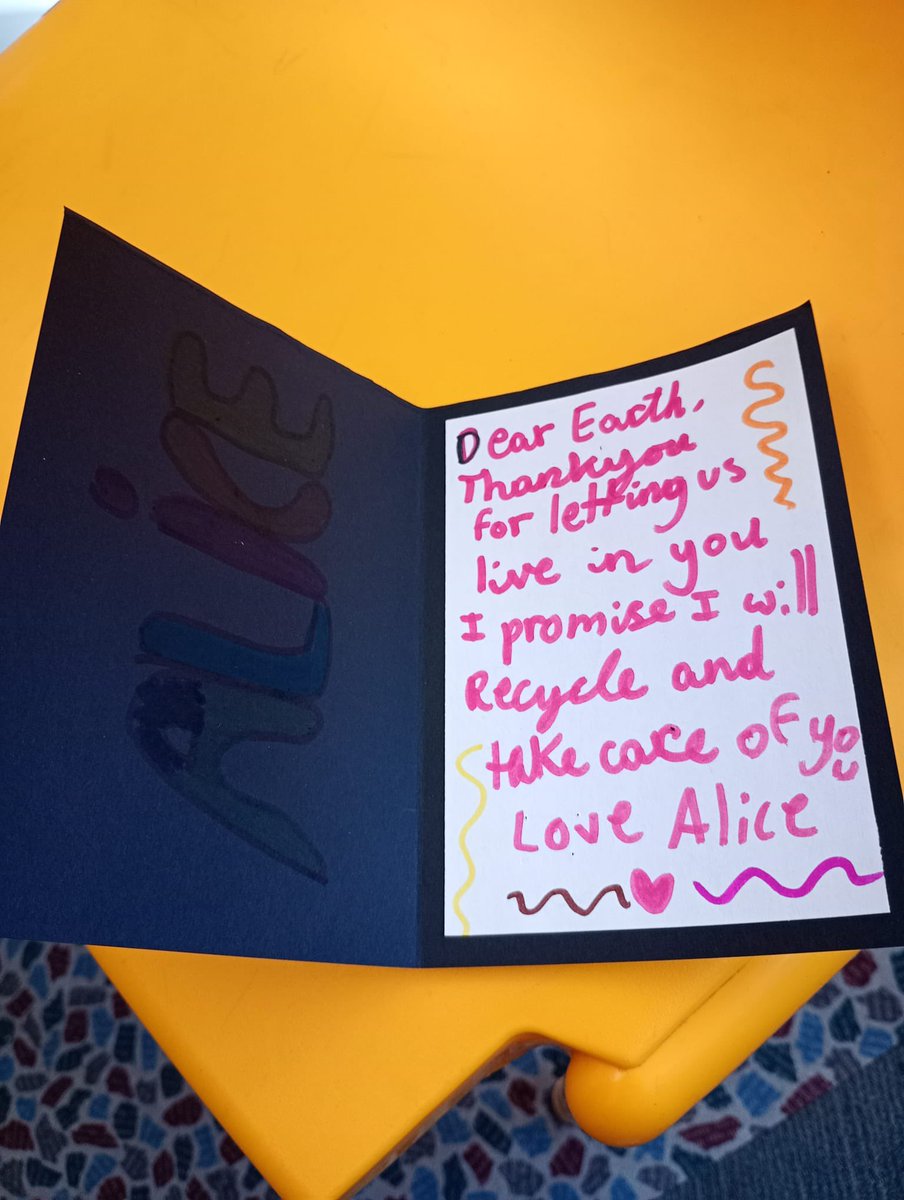 ALiKE
Dear Earth,
Thankyou
for letting us
live in you
I promise I will
Recycle and
take care of you
Love Alice